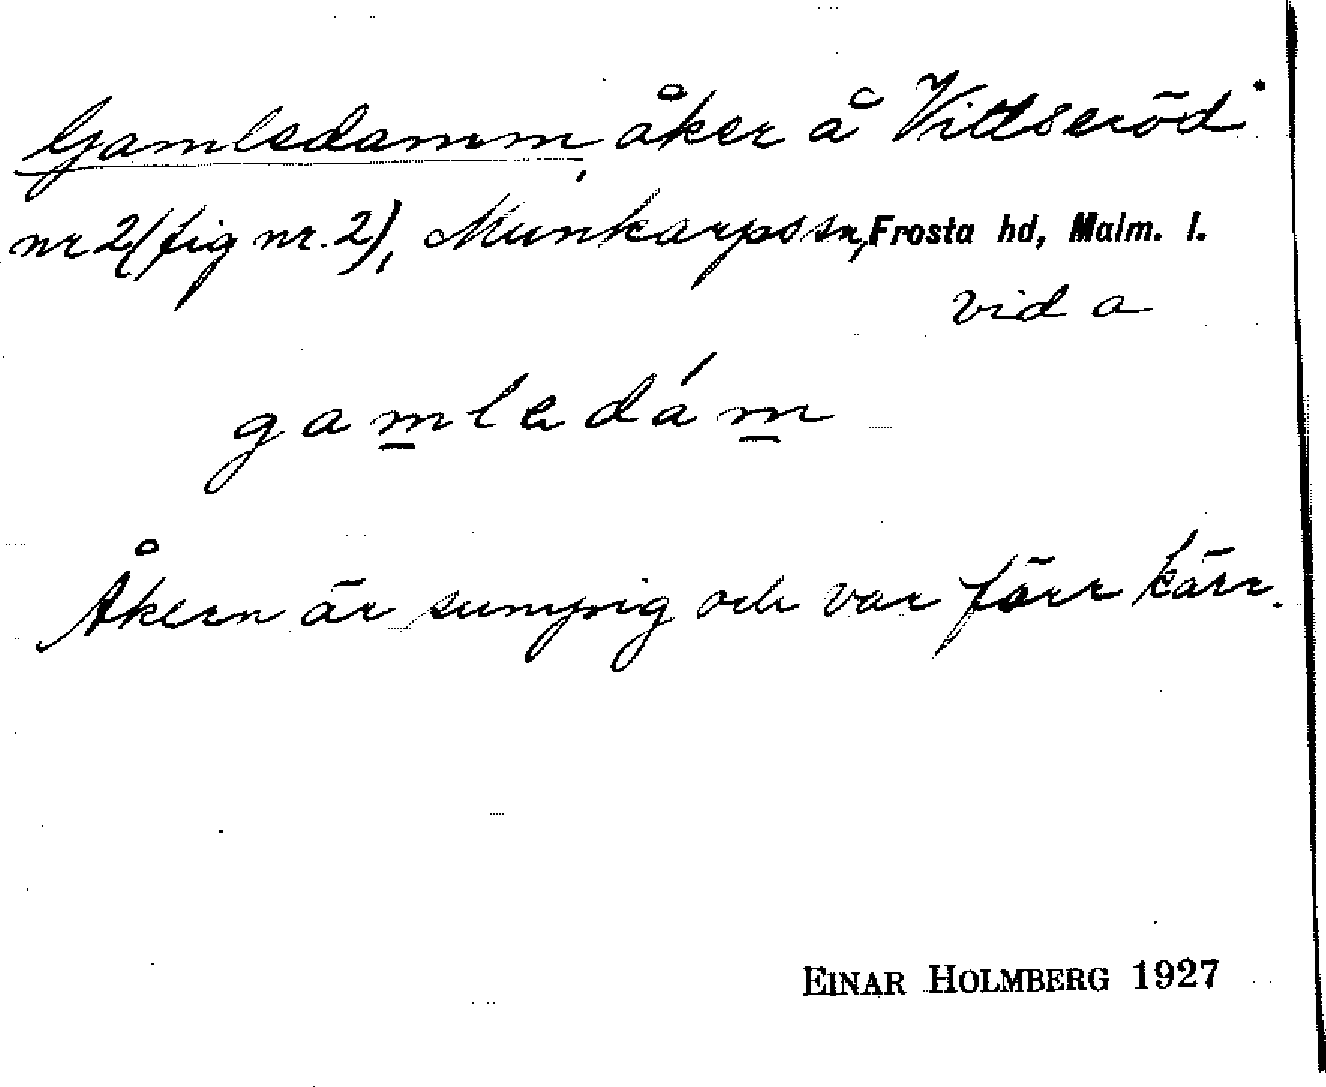 Gamledamm, åker å Vittseröd
nr 2 (fig nr. 2), Munkarps sn, Frosta hd, Malm. l.
vid a
gamledám
Åkern är sumpig och var förr kärr.
EINAR HOLMBERG 1927